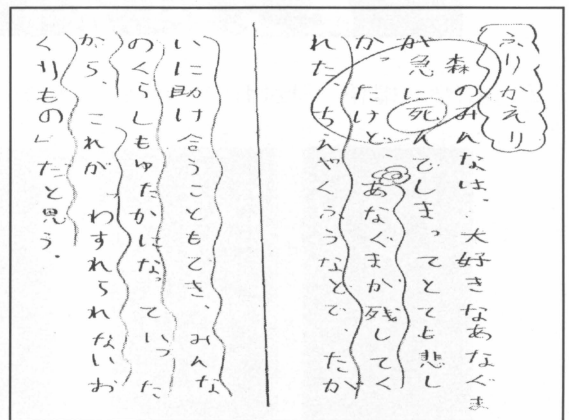 ふりかえり
森のみんなは、大好きなあなぐま
が急に死んでしまってとても悲し
かったけど、あなぐまが残してく
れた、ちえやくふうなどで、たが
いに助け合うこともでき、みんな
のくらしもゆたかになっていった
から、これが「わすれられないお
くりもの」だと思う。